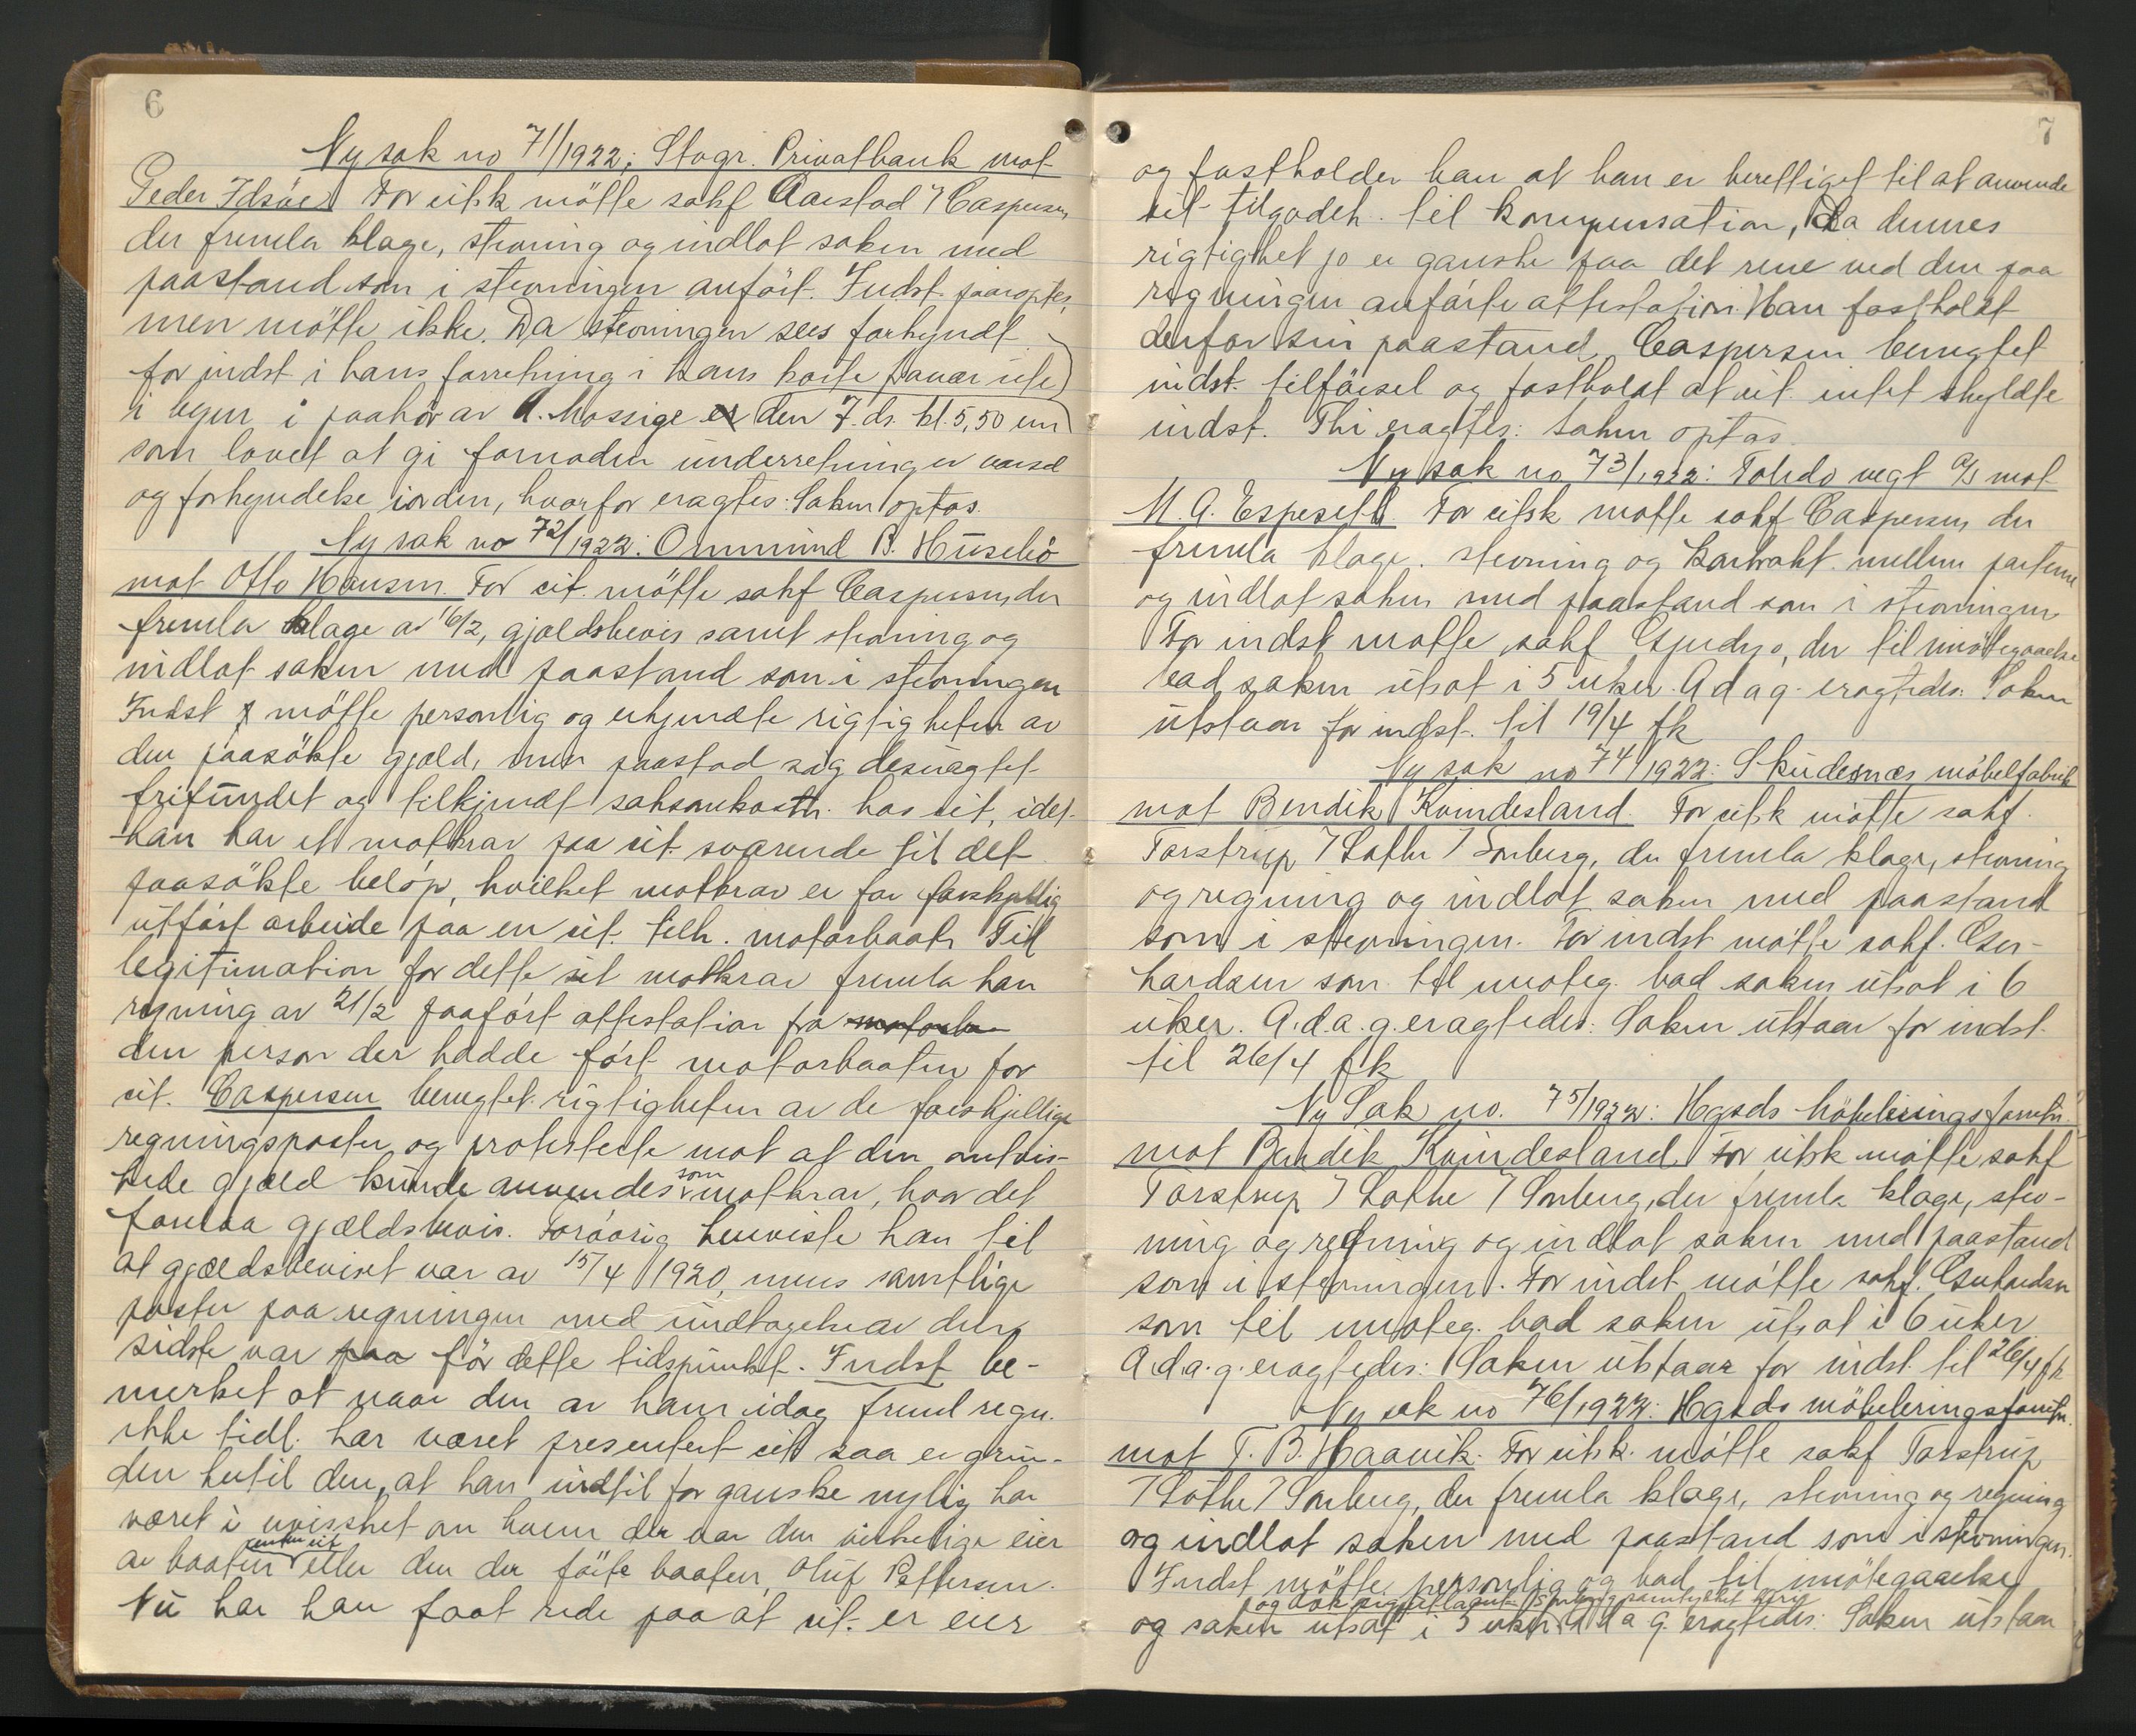 6
Ny sak no 71/1922: Stvgr. Privatbank mot
Peder Idsöe. For citsk mötte sakf Aarstad / Caspersen
der fremla klage, stevning og indlot saken med
paastand som i stevningen anfört. Indst. paaroptes,
men mötte ikke. Da stevningen sees forkyndt
for indst i hans forretning i hans
i byen i paahör av A. Mossige den 7. ds. kl. 5,50 em
som lovet at gi fornöden underretning er varsel
og forkyndelse iorden, hvorfor eragtes: Saken optas.
Ny sak no 72/1922: Ommund B. Husebö
mot Otto Hansen. For cit. mötte sakf Caspersen, der
fremla klage av 16/2, gjældsbevis samt stevning og
indlot saken med paastand som i stevningen
Indst mötte personlig og erkjendte rigtigheten av
den paasökte gjæld, men paastod sig desuagtet
frifundet og tilkjendt saksomkostn. hos cit, idet
han har et motkrav paa cit. svarende til det
paasökte belöp, hvilket motkrav er for forskjellig
utfört arbeide paa en cit. tilh. motorbaat. Til
legitimation for dette sit motkrav fremla han
regning av 21/2 paafört attestation fra
den person der hadde fört motorbaaten for
cit. Caspersen benegtet rigtigheten av de forskjellige
regningsposter og protesterte mot at den ombvis-
tede gjæld kunde anvendes som motkrav, hvor det
forelaa gjældsbevis. Forövrig henviste han til
at gjældsbeviset var av 15/4 1920, mens samtlige
poster paa regningen med undtagelse av den
sidste var paa för dette tidspunkt. Indst be-
merket at naar den av ham idag freml regn.
ikke tidl. har været presentert cit saa er grun-
den hertil den, at han indtil for ganske nylig har
været i uvisshet om hvem der var den virkelige eier
av baaten enten cit eller den der förte baaten, Oluf Pettersen.
Nu har han faat rede paa at cit. er eier
7
og fastholder han at han er berettiget til at anvende
sit tilgodeh. til kompensation, da dennes
rigtighet jo er ganske paa det rene ved den paa
regningen anförte attestation. Han fastholdt
derfor sin paastand. Caspersen benegtet
indst. tilförsel og fastholdt at cit. intet skyldte
indst. Thi eragtes: Saken optas.
Ny sak no 73/1922: Toledo vegt A/S mot
M. A. Espeseth. For citsk mötte sakf Caspersen, der
fremla klage. stevning og kontrakt mellem parterne
og indlot saken med paastand som i stevningen
For indst mötte sakf Gjedys, der til imötegaaelse
bad saken utsat i 5 uker. A d a g. eragtedes: Saken
utstaar for indst. til 19/4 fk
Ny sak no 74/1922: Skudesnes möbelfabrik
mot Bendik Kvindesland. For citsk mötte sakf.
Torstrup / Lothe / Sörberg, der fremla klage, stevning
og regning og indlot saken med paastand
som i stevningen. For indst mötte sakf. Ger-
hardsen som til imöteg. bad saken utsat i 6
uker. A. d. a. g. eragtedes: Saken utstaar for indst.
til 26/4 fk
Ny Sak no. 75/1922: Hgsds möbleringsforretn.
mot Bendik Kvindesland. For citsk mötte sakf
Torstrup / Lothe / Sörberg, der fremla klage, stev-
ning og regning og indlot saken med paastand
som i stevningen. For indst. mötte sakf. Gerhardsen
som til imöteg. bad saken utsat i 6 uker.
A. d. a. g. eragtedes: Saken utstaar for indst. til 26/4 fk
Ny sak no 76/1922: Hgsds möbleringsforretn.
mot T. B. Haavik. For citsk. mötte sakf Torstrup
/ Lothe / Sörberg, der fremla klage, stevning og regning
og indlot saken med paastand som i stevningen.
Indst mötte personlig og bad til imötegaaelse
og saken utsat i 5 uker. A d a g. eragtedes: Saken utstaar